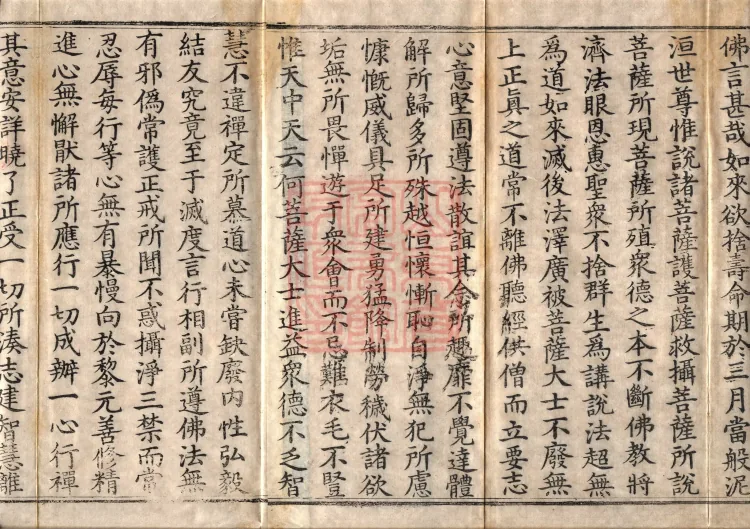 佛言甚哉如來欲捨壽命期於三月當般泥
洹世尊惟說諸菩薩護菩薩救攝菩薩所說
菩薩所現菩薩所殖衆德之本不斷佛教將
濟法眼恩惠聖衆不捨群生爲講說法超無
爲道如來滅後法澤廣被菩薩大士不廢無
上正眞之道常不離佛聽經供僧而立要志
心意堅固遵法散誼其余所趣靡不覺達體
解所歸多所殊越恒懷慚恥自淨無犯所慮
慷慨威儀具足所建勇猛降制勞穢伏諸欲
垢無所畏憚遊于衆會而不忌難衣毛不豎
惟天中天云何菩薩大士進益衆德不乏智
慧不違禪定所慕道心未嘗缺廢内性弘毅
結友究竟至于滅度言行相副所遵佛法無
有邪僞常護正戒所聞不惑攝淨三禁而當
忍辱每行等心無有暴慢向於黎元善修精
進心無懈猒諸所應行一切成辦一心行禪
其意安詳曉了正受一切所湊志建智慧離